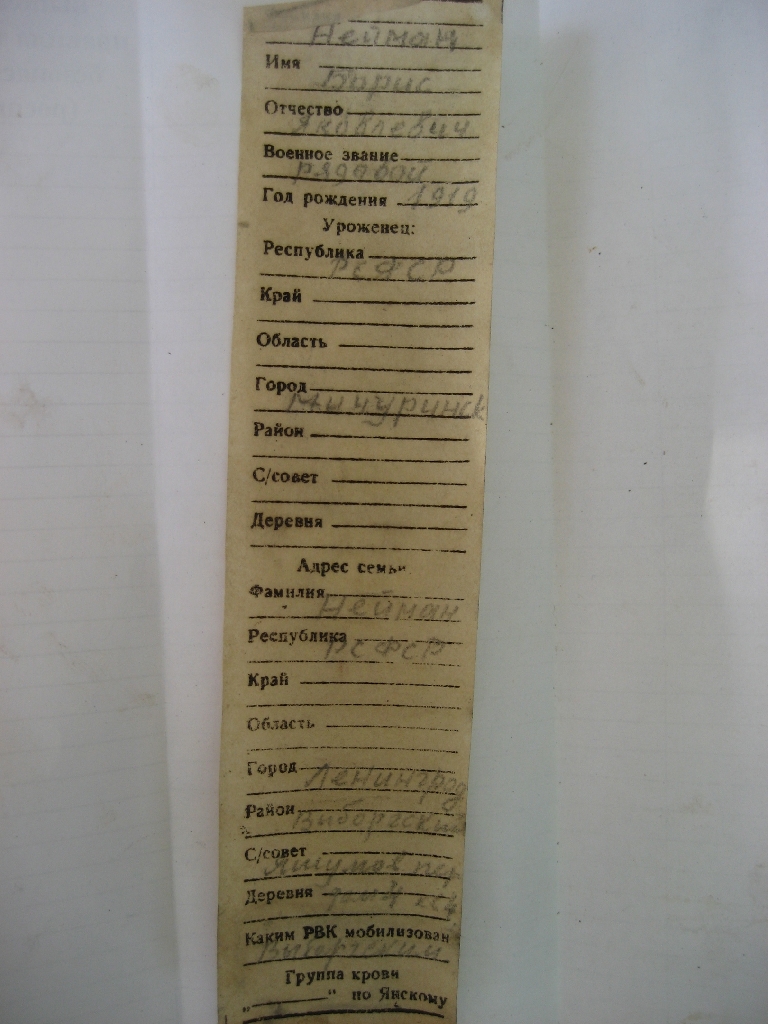 Нейман
Имя
Борис
Отчество
Яковлевич
Военное звание
рядовой
Год рождения 1919
Уроженец:
Республика
РСФСР
Край
Область
Город
Мичуринск
Район
С/совет
Деревня
Адрес семьи
Фамилия
Нейман
Республика
РСФСР
Край
Область
Город
Ленинград
Район
Выборгский
С/совет
пер
Деревня дом 4 кв
Каким РВК мобилизован
Выборгский
Группа крови
„ “ по Янскому